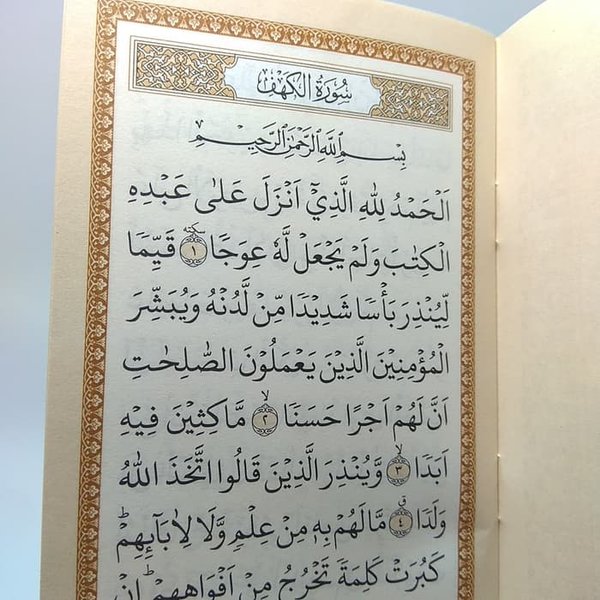 سُورَةُ الْكَهْفِ
بِسْمِ اللّٰهِ الرَّحْمٰنِ الرَّحِيْمِ
اَلْحَمْدُ لِلّٰهِ الَّذِيْٓ اَنْزَلَ عَلٰى عَبْدِهِ
الْكِتٰبَ وَلَمْ يَجْعَلْ لَّهٗ عِوَجًا سكته ١ قَيِّمًا
لِّيُنْذِرَ بَأْسًا شَدِيْدًا مِّنْ لَّدُنْهُ وَيُبَشِّرَ
الْمُؤْمِنِيْنَ الَّذِيْنَ يَعْمَلُوْنَ الصّٰلِحٰتِ
اَنَّ لَهُمْ اَجْرًا حَسَنًا ۙ ٢ مَّاكِثِيْنَ فِيْهِ
اَبَدًا ۙ ٣ وَّيُنْذِرَ الَّذِيْنَ قَالُوا اتَّخَذَ اللّٰهُ
وَلَدًا ق ٤ مَّا لَهُمْ بِهٖ مِنْ عِلْمٍ وَّلَا لِاٰبَاۤىِٕهِمْ ۗ
كَبُرَتْ كَلِمَةً تَخْرُجُ مِنْ اَفْوَاهِهِمْ ۗ اِنْ